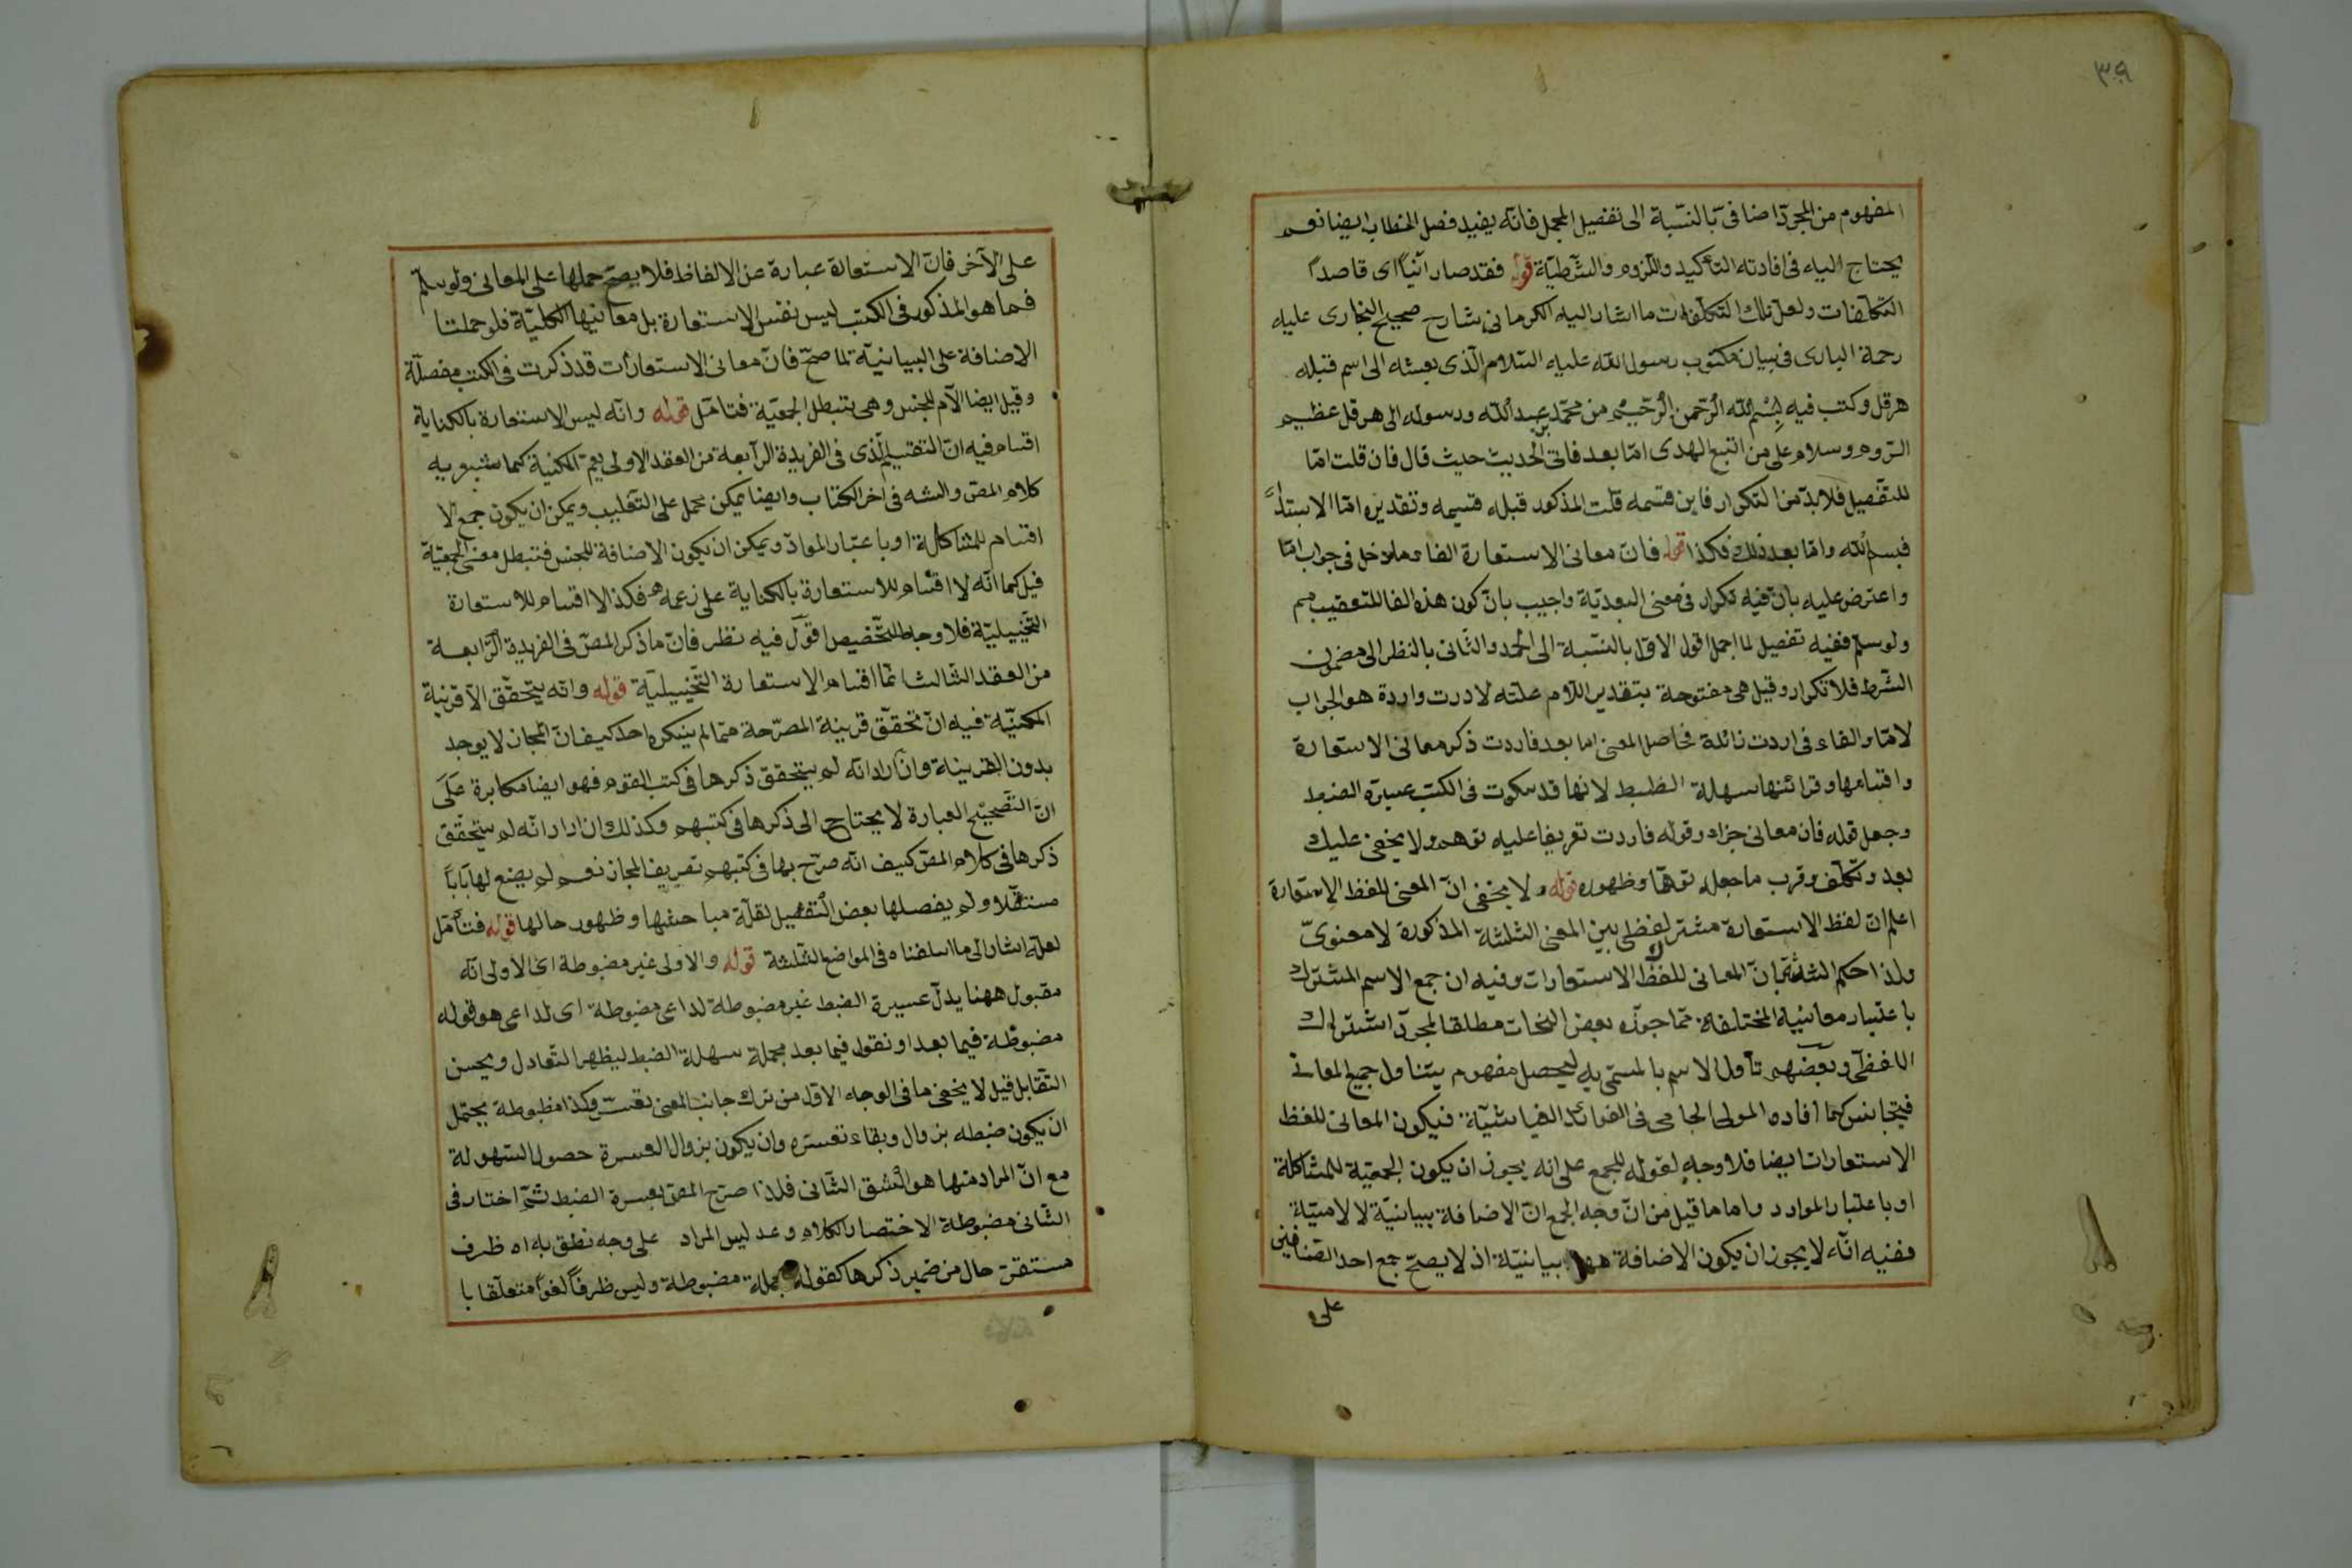 ٣٩
المفهوم من المجرد اضافى بالنسبة الى تفصيل المجمل فانه يفيد فصل الخطاب ايضا نعم
يحتاج اليه فى افادته التأكيد واللزوم والشرطية قوله فقد صار آتيا اى قاصدا
التكلفات ولعل تلك التكلفات ما اشار اليه الكرمانى شارح صحيح البخارى عليه
رحمة البارى فى بيان مكتوب رسول الله عليه السلام الذى بعثه الى اسم قبله
هرقل وكتب فيه بسم الله الرحمن الرحيم من محمد بن عبد الله ورسوله الى هرقل عظيم
الروم وسلام على من اتبع الهدى امّا بعد فاتى الحديث حيث قال فان قلت امّا
للتفصيل فلا بدّ من التكرار فاين قسمه قلت المذكور قبله قسيمه وتقديره امّا الابتداء
فبسم الله وامّا بعد ذلك فكذا قوله فان معانى الاستعارة الفاء مدخل فى جواب امّا
واعترض عليه بانّ فيه تكرار فى معنى البعديّة واجيب بانّ كون هذه الفا للتعقيب مم
ولو سلم ففيه تفصيل لما اجمل اقول الاول بالنسبة الى الحمد والثانى بالنظر الى مضمون
الشرط فلا تكرار وقيل هى مفتوحة بتقدير اللام علته لاردت واردة هو الجواب
لامّا والفاء فى اردت زائلة فحاصل المعنى اما بعد فاردت ذكر معانى الاستعارة
واقسامها وقرائنها سهلة الظبط لانها قد سكوت فى الكتب عسيرة الضبط
وجعل قوله فان معانى جزاء وقوله فاردت تعريفا عليه توهم ولا يخفى عليك
بعد وتكلف وقرب ما جعله توهّما وظهوره قوله ولا يخفى انّ المعنى للفظ الاستعارة
اعلم ان لفظ الاستعارة مشترك لفظى بين المعنى الثلثة المذكورة لا معنوىّ
ولذا حكم الشه بانّ المعانى للفظ الاستعارات وفيه ان جمع الاسم المشترك
باعتبار معانيه المختلفة ممّا جوزه بعض النحات مطلقا لمجرّد اشتراك
اللفظى وبعضهم تأول الاسم بالمسمّى به ليحصل مفهوم يتناول جميع المعانى
فيتجانس كما افاده المولى الجامى فى الفوائد الضيائيّة فيكون المعانى للفظ
الاستعارات ايضا فلا وجه لقوله للجمع على انه يجوز ان يكون الجمعيّة للمشاكلة
او باعتبار المواد واما ما قيل من انّ وجه الجمع انّ الاضافة بيانيّة لا لاميّة
ففيه انّه لا يجوز ان يكون الاضافة ههنا بيانيّة اذ لا يصحّ جمع احد المتضافين
على
على الآخر فانّ الاستعارة عبارة عن الالفاظ فلا يصحّ حملها على المعانى ولو سلم
فما هو المذكور فى الكتب ليس نفس الاستعارة بل معانيها الكليّة فلو حملت
الاضافة على البيانيّة لما صحّ فانّ معانى الاستعارات قد ذكرت فى الكتب مفصلة
وقيل ايضا اللام للجنس وهى تبطل الجمعيّة فتامّل قوله وانّه ليس الاستعارة بالكناية
اقسام فيه انّ التقسيم الّذى فى الفريدة الرّابعة من العقد الاولى يعمّ المكنية كما يشير به
كلام المصّ والشه فى آخر الكتاب وايضا يمكن حمل على التغليب ويمكن ان يكون جمع الا
اقسام للمشاكلة او باعتبار الموادّ ويمكن ان يكون الاضافة للجنس فتبطل معنى الجمعيّة
قيل كما انّه لا اقسام للاستعارة بالكناية على زعمه فكذا لا اقسام للاستعارة
التخييليّة فلا وجه للتخصيص اقول فيه نظر فانّ ما ذكر المصّ فى الفريدة الرّابعة
من العقد الثالث انّما اقسام الاستعارة التخييليّة قوله وانّه يتحقّق الّا قرينة
المكنيّة فيه انّ تحقّق قرينة المصرّحة ممّا لم ينكره احد كيف انّ المجاز لا يوجد
بدون القرينة وان اراد انّه لم يتحقق ذكرها فى كتب القوم فهو ايضا مكابرة على
انّ التصحيح العبارة لا يحتاج الى ذكرها فى كتبهم وكذلك ان اراد انّه لم يتحقّق
ذكرها فى كلام المصّ كيف انّه صرّح بها فى كتبهم تعريف المجاز نعم لم يضع لها بابا
مستقلّا ولم يفصلها بعض التفصيل لقلّة مباحثها وظهور حالها قوله فتأمّل
لعلّه اشار الى ما اسلفناه فى المواضع الثلثة قوله والاولى غير مضبوطة اى الاولى انّه
مقبول ههنا يدلّ عسيرة الضبط غير مضبوطة لداعى مضبوطة اى لداعى هو قوله
مضبوطة فيما بعد او نقول فيما بعد مجملة سهلة الضبط ليظهر التعادل ويحسن
التقابل قيل لا يخفى ما فى الوجه الاوّل من ترك جانب المعنى وكذا مظبوطة يحتمل
ان يكون ضبطه بزوال وبقاء تعسّره وان يكون بزوال العسرة حصول السهولة
مع انّ المراد منها هو الشق الثانى فلذا صرّح المصّ بعسرة الضبط ثمّ اختار فى
الثانى مضبوطة الاختصار الكلام وعد ليس المراد على وجه نطق به اه ظرف
مستقرّ حال من ضمير ذكرها كقوله مجملة مضبوطة وليس ظرفا لغوا متعلّقا با